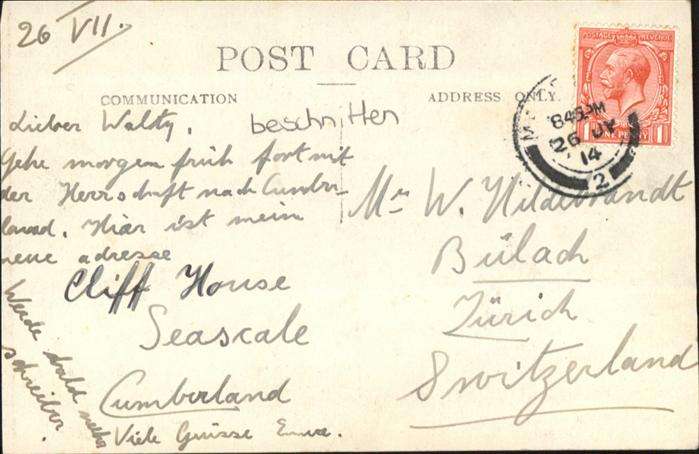 26 VII.
POST CARD
COMMUNICATION
ADDRESS ONLY.
POSTAGE REVENUE
ONE PENNY
1 1
8 45 PM
26 JY
14
2
beschnitten
Lieber Waldy,
Gehe morgen früh fort mit
der Herrschaft nach Cumber-
land. Hier ist mein
neue adresse
Cliff House
Seascale
Cumberland
Werde bald mehr
schreiben.
Viele Grüsse
Mr W. Hildebrandt
Bülach
Zürich
Switzerland